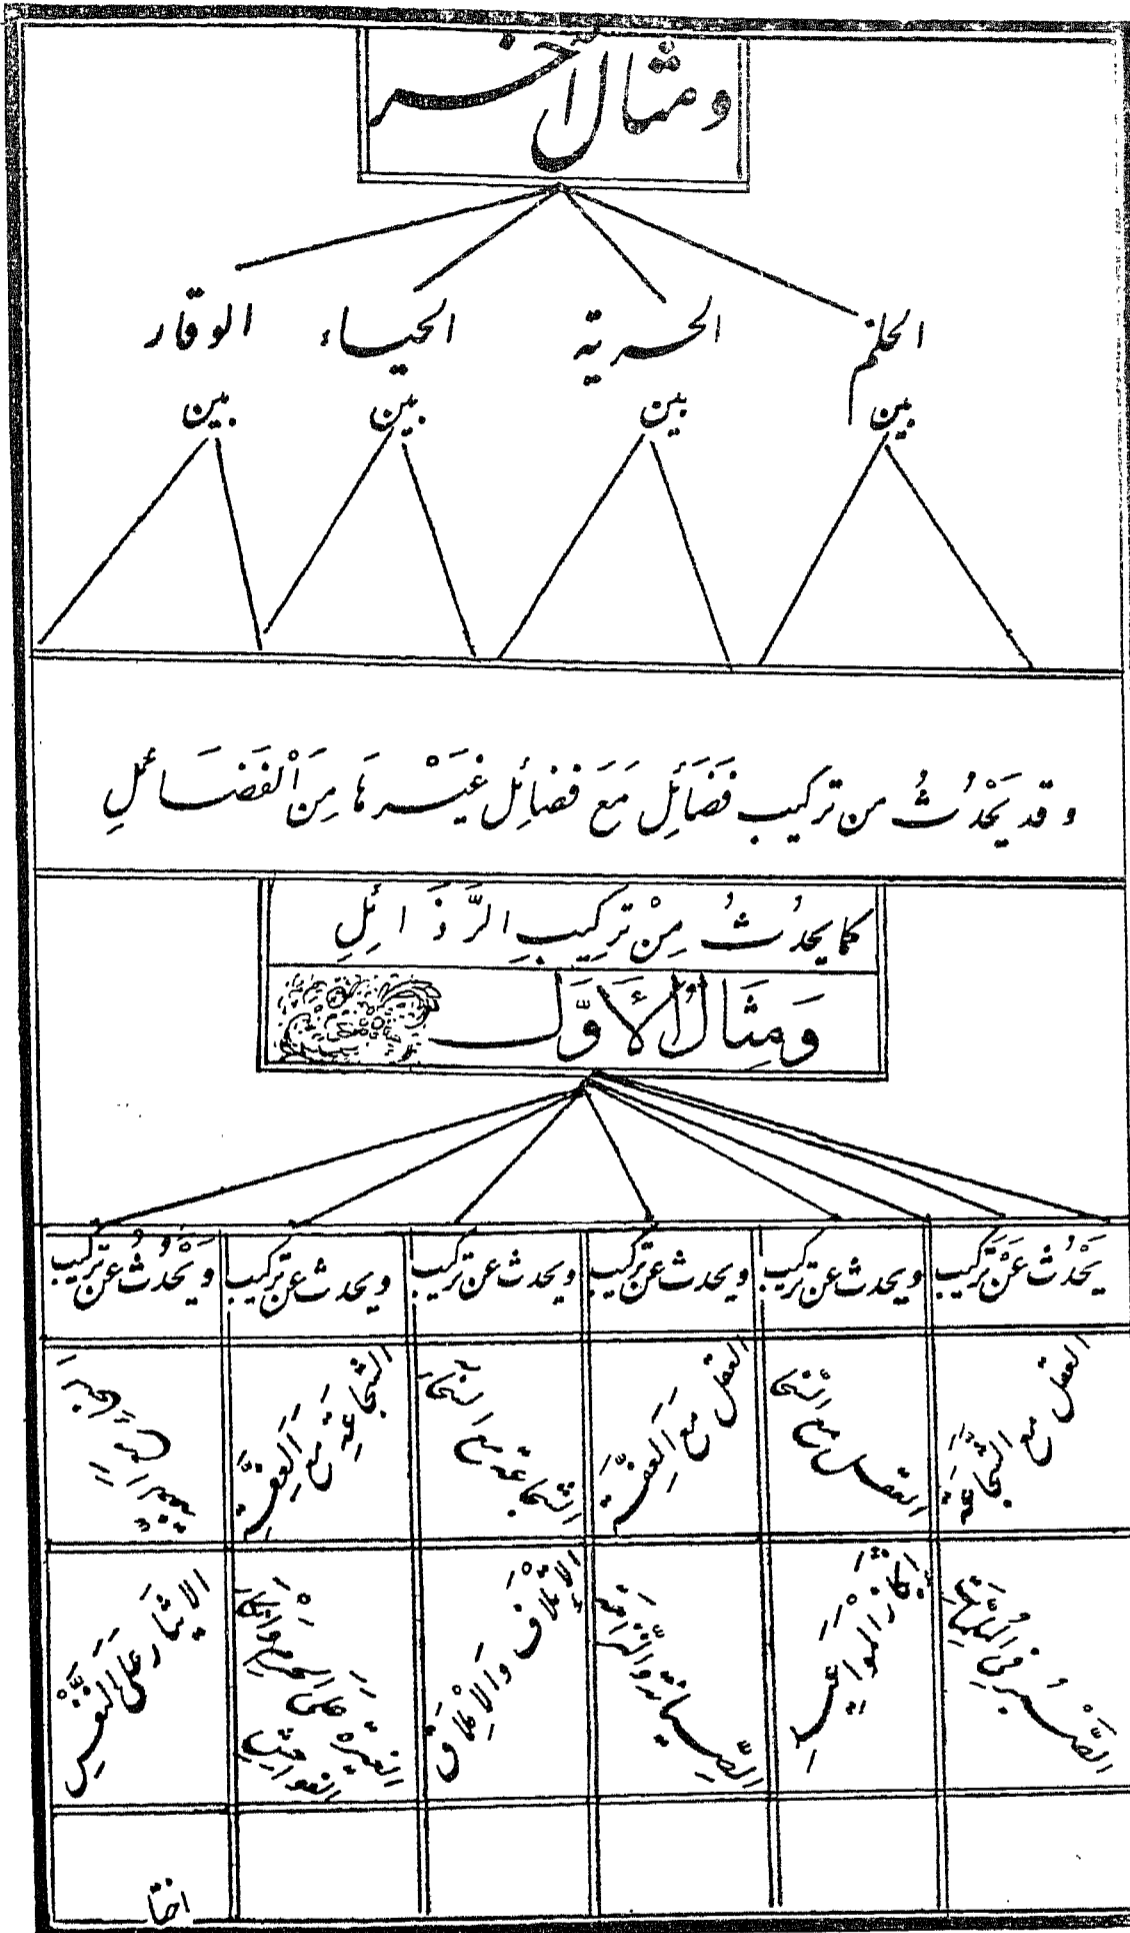 ومثال آخر
الحلم الحرية الحياء الوقار
بين بين بين بين
وقد يَحْدُثُ من تركيب فَضَائِل مَعَ فضَائِل غَيْرهَا مِنَ الْفَضَائلِ
كما يحدُثُ مِنْ تركيبِ الرَّذَائِلِ
وَمِثَالُ الأَوَّل
يَحْدُثُ عَنْ تَركيب ويحدث عن تركيب ويحدث عن تركيب ويحدث عن تركيب ويحدث عن تركيب وَيَحْدُثُ عن تركيب
العقل مع الشجاعَة العقل مع السَّخا العقل مع العِفَّة الشجاعة مع السخآء الشجاعةِ مع العِفَّة
الصَّبْرُ في المُلِمَّاتِ إنجَازُ المَوَاعِيدِ الصِّيانة والنَّزاهة الإتْلاف والإملاق الغيرة على الحَرم وانكار الفواحش الايثار على النَّفْسِ
اختا